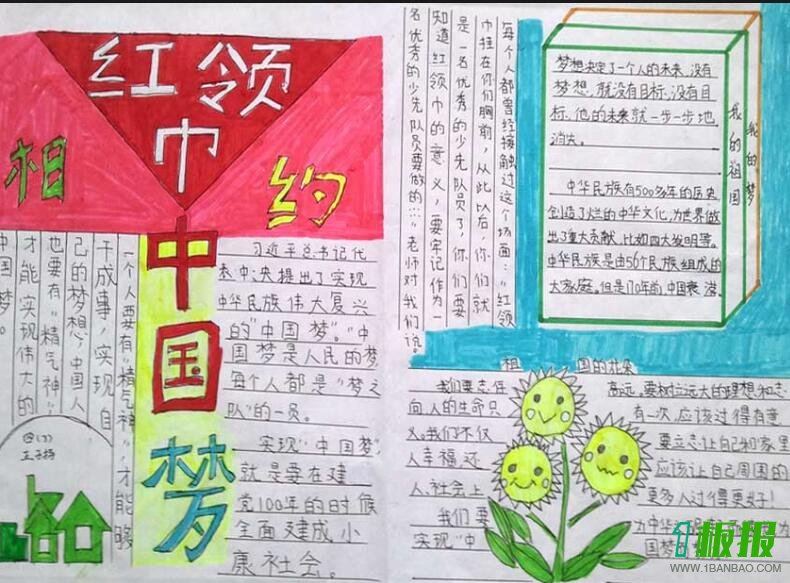 红领巾
相约
中国梦
一个人要有"精气神",才能够
干成事,实现自
己的梦想,中国人
也要有"精气神"
才能实现伟大的
中国梦。
四(3)
王子扬
习近平总书记代
表中央提出了实现
中华民族伟大复兴
的"中国梦"。"中
国梦是人民的梦
每个人都是"梦之
队"的一员。
实现"中国梦,
就是要在建
党100年的时候
全面建成小
康社会。
每个人都曾经接触过这个场面:"红领
巾挂在你们胸前,从此以后,你们就
是一名优秀的少先队员了,你们要
知道红领巾的意义,要牢记作为一
名优秀的少先队员要做的:::"老师对我们说。
梦想决定了一个人的未来,没有
梦想,就没有目标,没有目
标,他的未来就一步一步地
消失。
中华民族有500多年的历史
创造了烂的中华文化,为世界做
出了重大贡献,比如四大发明等。
中华民族是由56个民族组成的
大家庭。但是170年前,中国衰
我的梦
我的祖国
祖国的花朵
我们要志存高远。要树立远大的理想和志
向,人的生命只有一次,应该过得有意
义。我们不仅要立志让自己和家里
人幸福,还应该让自己周围的
人、社会上更多人过得更好!
我们要为中华
实现"中国梦"
1板报
WWW.1BANBAO.COM